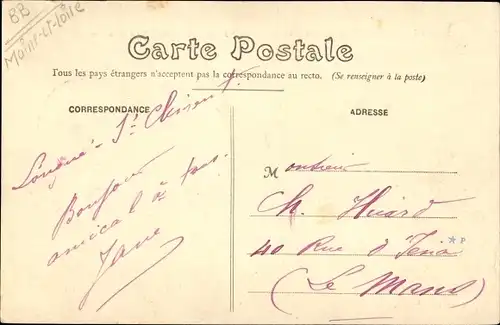 BB
Maine-et-Loire
Carte Postale
Tous les pays étrangers n'acceptent pas la correspondance au recto. (Se renseigner à la poste)
CORRESPONDANCE
Longué - St Clément
Bonjour
amical à tous
Jane
ADRESSE
Monsieur
Ch. Huard
40 Rue d'Iéna
(Le Mans)
*P